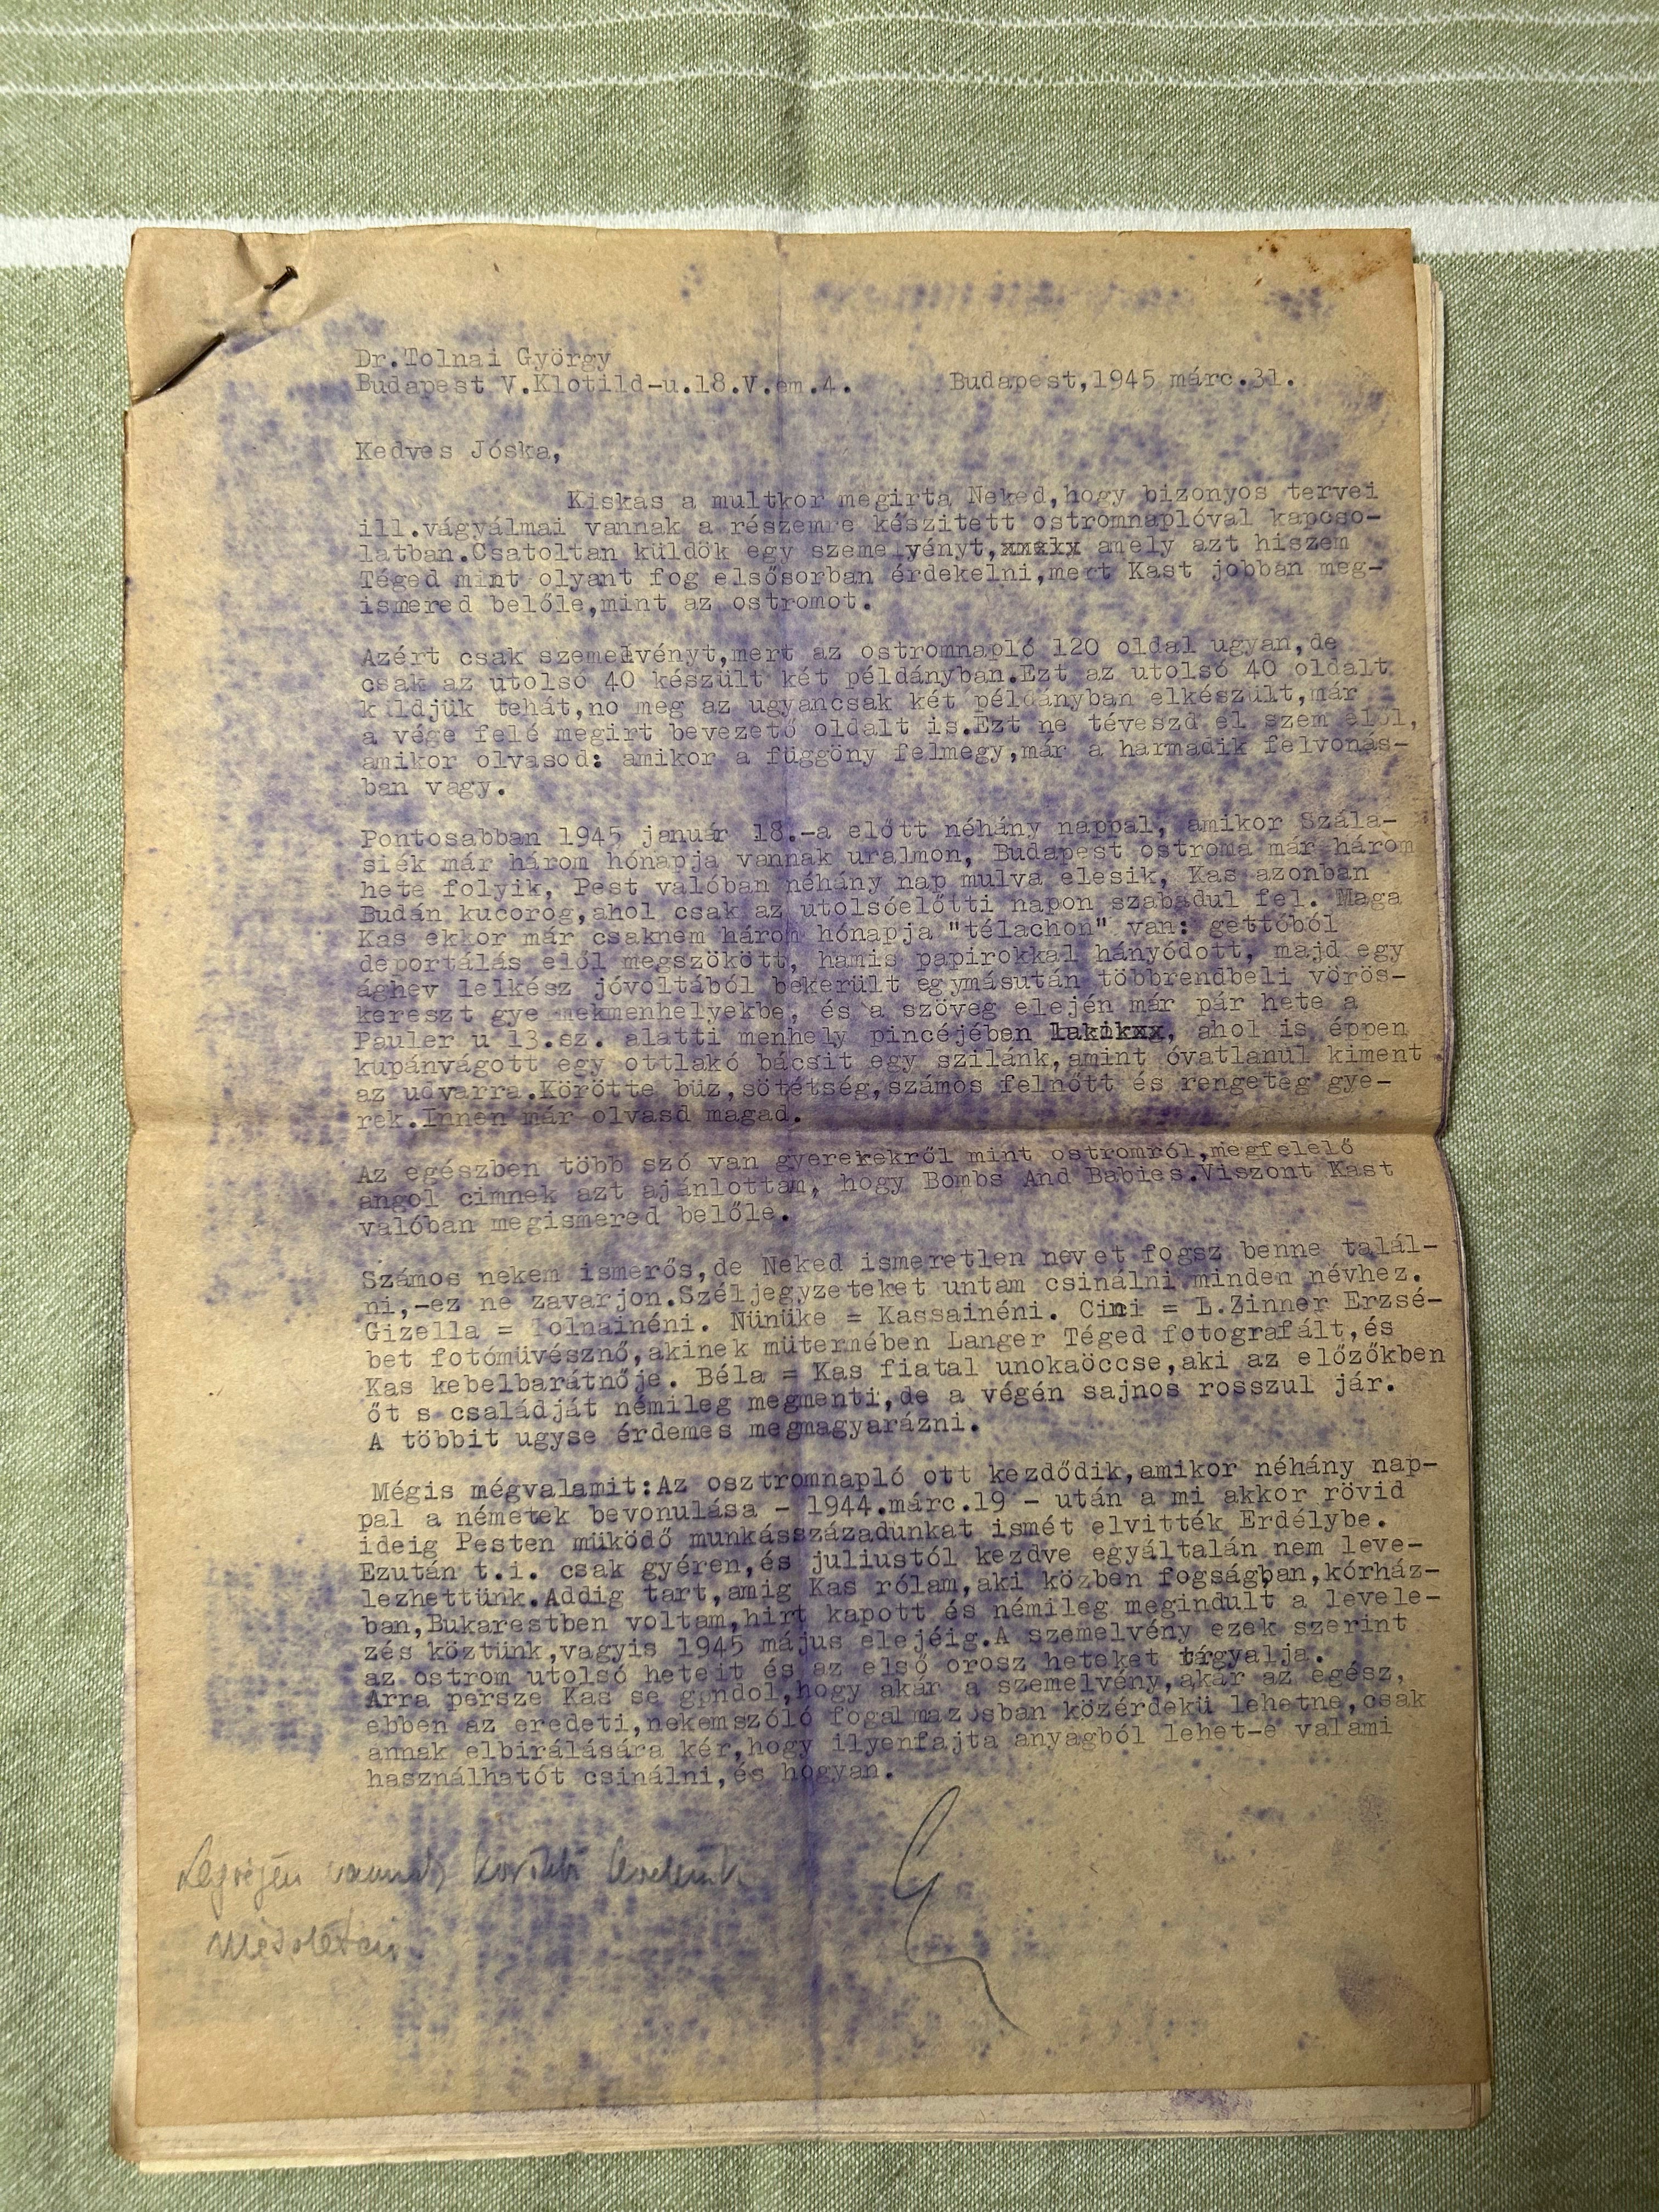 Dr.Tolnai György
Budapest V.Klotild-u.18.V.em.4. Budapest,1945 márc.31.
Kedves Jóska,
Kiskas a multkor megirta Neked,hogy bizonyos tervei
ill.vágyálmai vannak a részemre készitett ostromnaplóval kapcso-
latban.Csatoltan küldök egy szemelvényt,xmxkx amely azt hiszem
Téged mint olyant fog elsősorban érdekelni,mert Kast jobban meg-
ismered belőle,mint az ostromot.
Azért csak szemelvényt,mert az ostromnapló 120 oldal ugyan,de
csak az utolsó 40 készült két példányban.Ezt az utolsó 40 oldalt
küldjük tehát,no meg az ugyancsak két példányban elkészült,már
a vége felé megirt bevezető oldalt is.Ezt ne téveszd el szem elől,
amikor olvasod: amikor a függöny felmegy,már a harmadik felvonás-
ban vagy.
Pontosabban 1945 január 18.-a előtt néhány nappal, amikor Szála-
siék már három hónapja vannak uralmon, Budapest ostroma már három
hete folyik, Pest valóban néhány nap mulva elesik, Kas azonban
Budán kucorog,ahol csak az utolsóelőtti napon szabadul fel. Maga
Kas ekkor már csaknem három hónapja "télachon" van: gettóból
deportálás elől megszökött, hamis papirokkal hányódott, majd egy
ághev lelkész jóvoltából bekerült egymásután többrendbeli vörös-
kereszt gyermekmenhelyekbe, és a szöveg elején már pár hete a
Pauler u 13.sz. alatti menhely pincéjében lakikxx, ahol is éppen
kupánvágott egy ottlakó bácsit egy szilánk,amint óvatlanul kiment
az udvarra.Körötte büz,sötétség,számos felnőtt és rengeteg gye-
rek.Innen már olvasd magad.
Az egészben több szó van gyerekekről mint ostromról,megfelelő
angol cimnek azt ajánlottam, hogy Bombs And Babies.Viszont Kast
valóban megismered belőle.
Számos nekem ismerős,de Neked ismeretlen nevet fogsz benne talál-
ni,-ez ne zavarjon.Széljegyzeteket untam csinálni minden névhez.
Gizella = Tolnainéni. Nünüke = Kassainéni. Cini = L.Zinner Erzsé-
bet fotómüvésznő,akinek mütermében Langer Téged fotografált,és
Kas kebelbarátnője. Béla = Kas fiatal unokaöccse,aki az előzőkben
őt s családját némileg megmenti,de a végén sajnos rosszul jár.
A többit ugyse érdemes megmagyarázni.
Mégis mégvalamit:Az osztromnapló ott kezdődik,amikor néhány nap-
pal a németek bevonulása - 1944.márc.19 - után a mi akkor rövid
ideig Pesten müködő munkásszázadunkat ismét elvitték Erdélybe.
Ezután t.i. csak gyéren,és juliustól kezdve egyáltalán nem leve-
lezhettünk.Addig tart,amig Kas rólam,aki közben fogságban,kórház-
ban,Bukarestben voltam,hirt kapott és némileg megindult a levele-
zés köztünk,vagyis 1945 május elejéig.A szemelvény ezek szerint
az ostrom utolsó heteit és az első orosz heteket tárgyalja.
Arra persze Kas se gondol,hogy akár a szemelvény,akár az egész,
ebben az eredeti,nekemszóló fogalmazásban közérdekü lehetne,csak
annak elbirálására kér,hogy ilyenfajta anyagból lehet-e valami
használhatót csinálni,és hogyan.
vannak korábbi